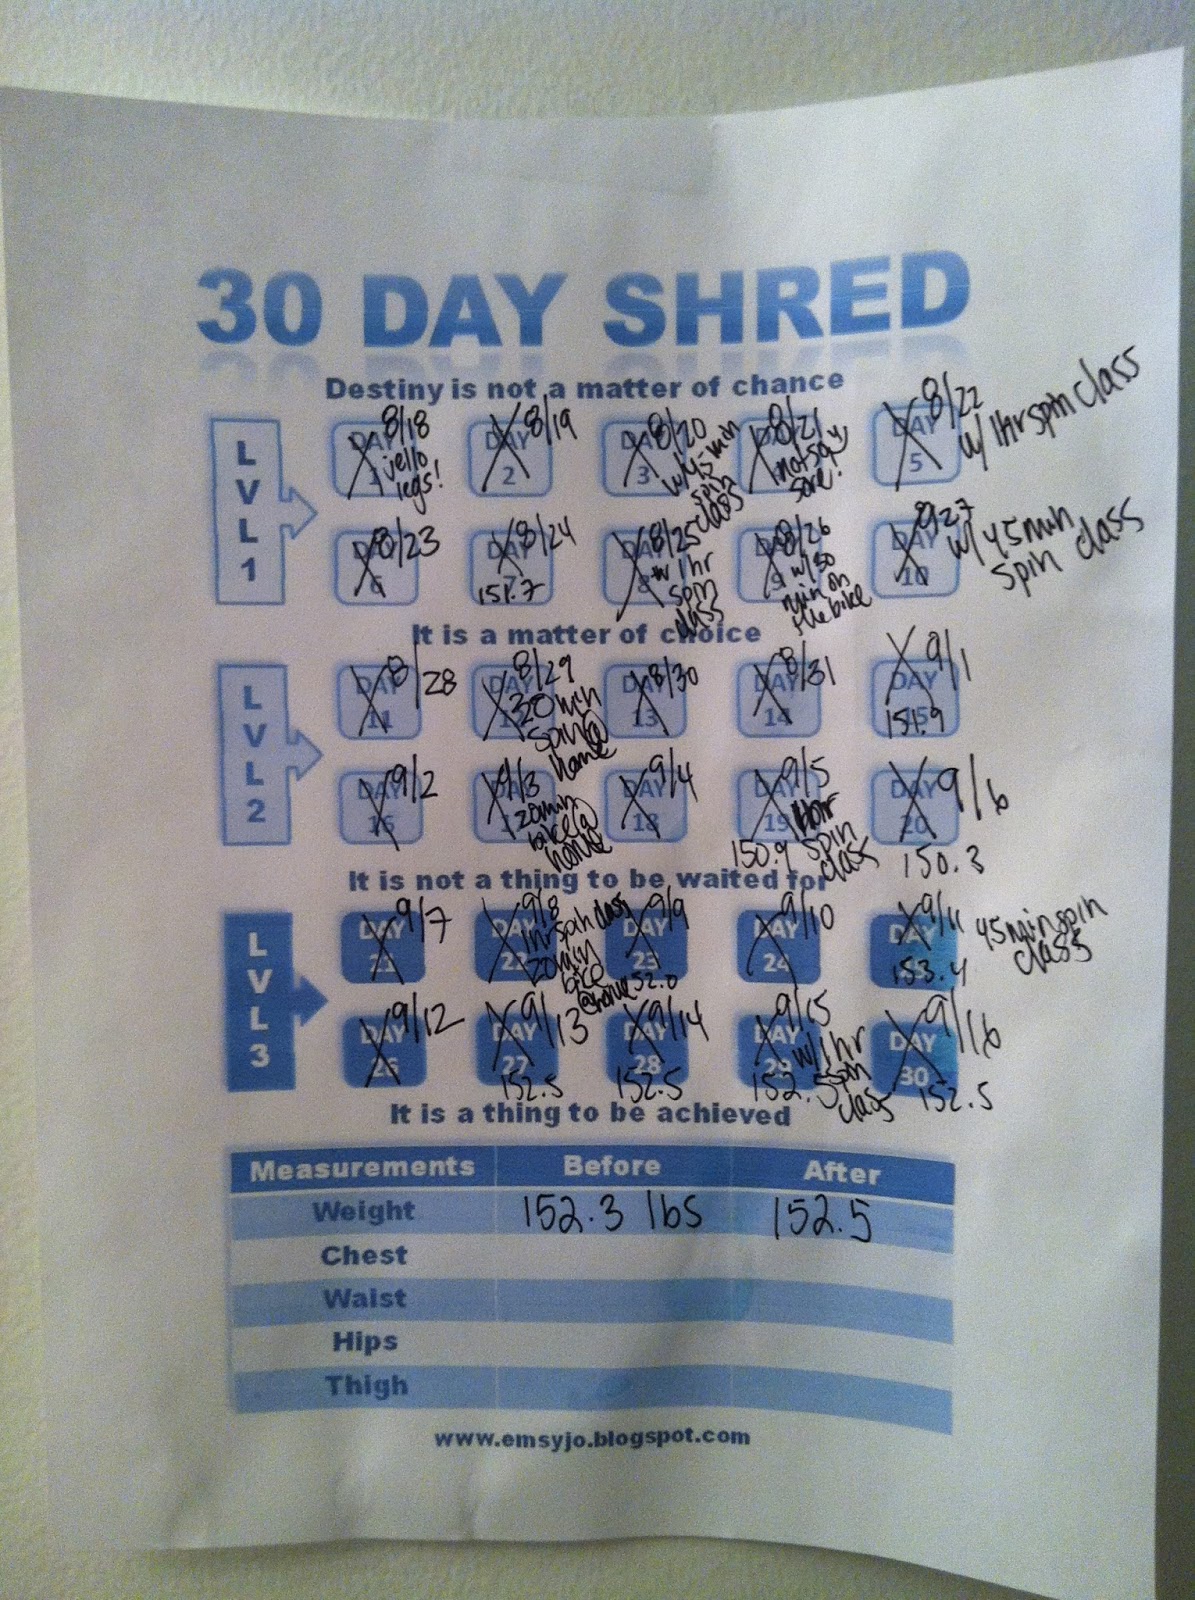 30 DAY SHRED
Destiny is not a matter of chance
LVL 1
DAY 1 8/18 jello legs!
DAY 2 8/19
DAY 3 8/20 w/45 min spin class
8/21 not so sore!
DAY 5 8/22 w/ 1hr spin class
DAY 6 8/23
DAY 7 8/24 151.7
DAY 8 8/25 w 1hr spin class
DAY 9 8/26 w/30 min on the bike
DAY 10 8/27 w/ 45 min spin class
It is a matter of choice
LVL 2
DAY 11 8/28
DAY 8/29 20 min spin @ home
DAY 13 8/30
DAY 14 8/31
DAY 15 9/1 151.9
DAY 16 9/2
9/3 20min bike @ home
DAY 18 9/4
DAY 19 9/5 1 hr spin class 150.9
DAY 20 9/6 150.3
It is not a thing to be waited for
LVL 3
DAY 21 9/7
DAY 22 9/8 1hr spin class 20min bike @ home
DAY 23 9/9 152.0
DAY 24 9/10
DAY 9/11 45 min spin class 153.4
DAY 26 9/12
DAY 27 9/13 152.5
DAY 28 9/14 152.5
DAY 29 9/15 w/1hr spin class 152.5
DAY 30 9/16 152.5
It is a thing to be achieved
Measurements Before After
Weight 152.3 lbs 152.5
Chest
Waist
Hips
Thigh
www.emsyjo.blogspot.com